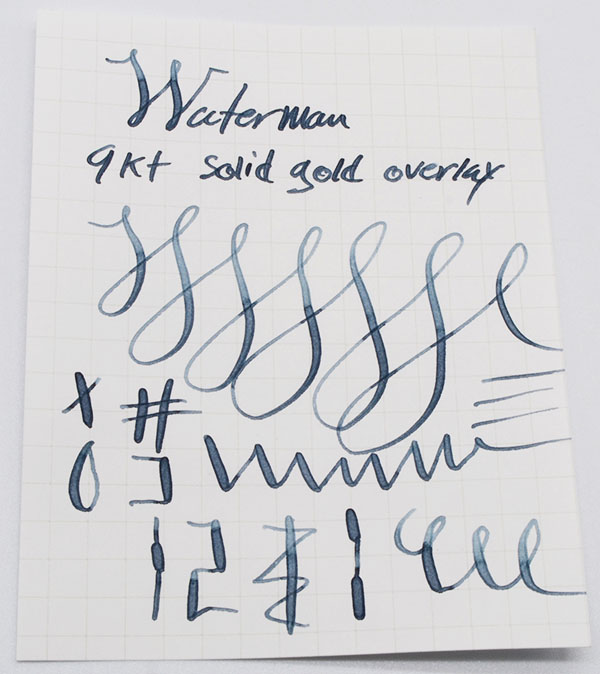 Waterman
9kt solid gold overlay
X #